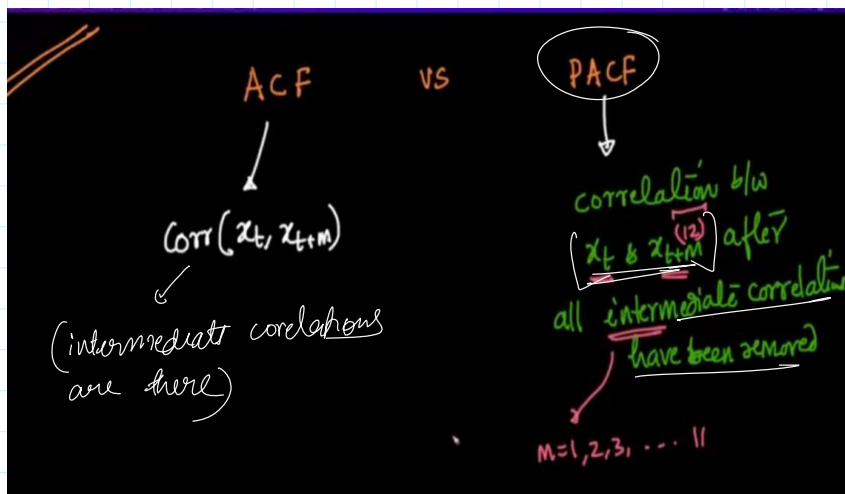 ACF vs PACF
Corr(xₜ, xₜ₊ₘ)
(intermediate corelations
are there)
correlation b/w
(12)
[xₜ & xₜ₊ₘ] after
all intermediate correlation
have been removed
m=1,2,3, .... 11